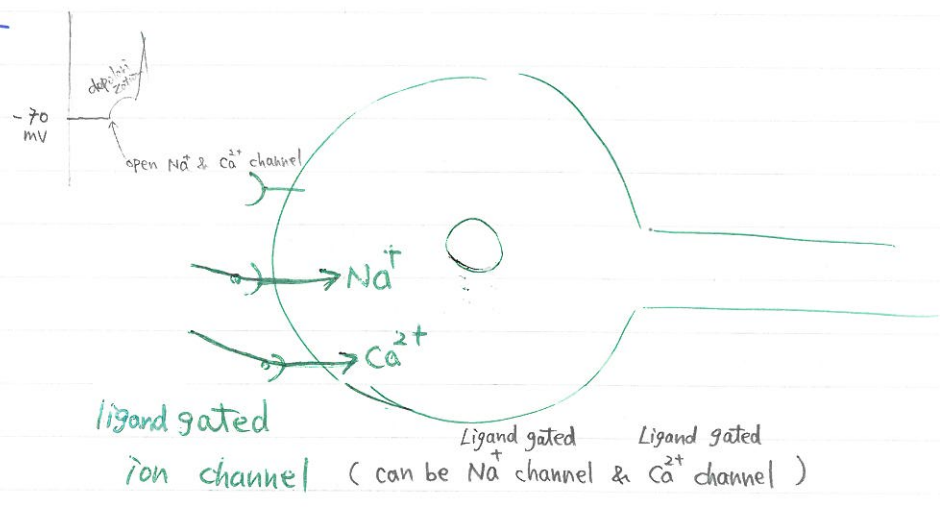 depolarization
-70
mV
open Na+ & Ca2+ channel
Na+
Ca2+
ligand gated
ion channel
Ligand gated Ligand gated
( can be Na+ channel & Ca2+ channel )